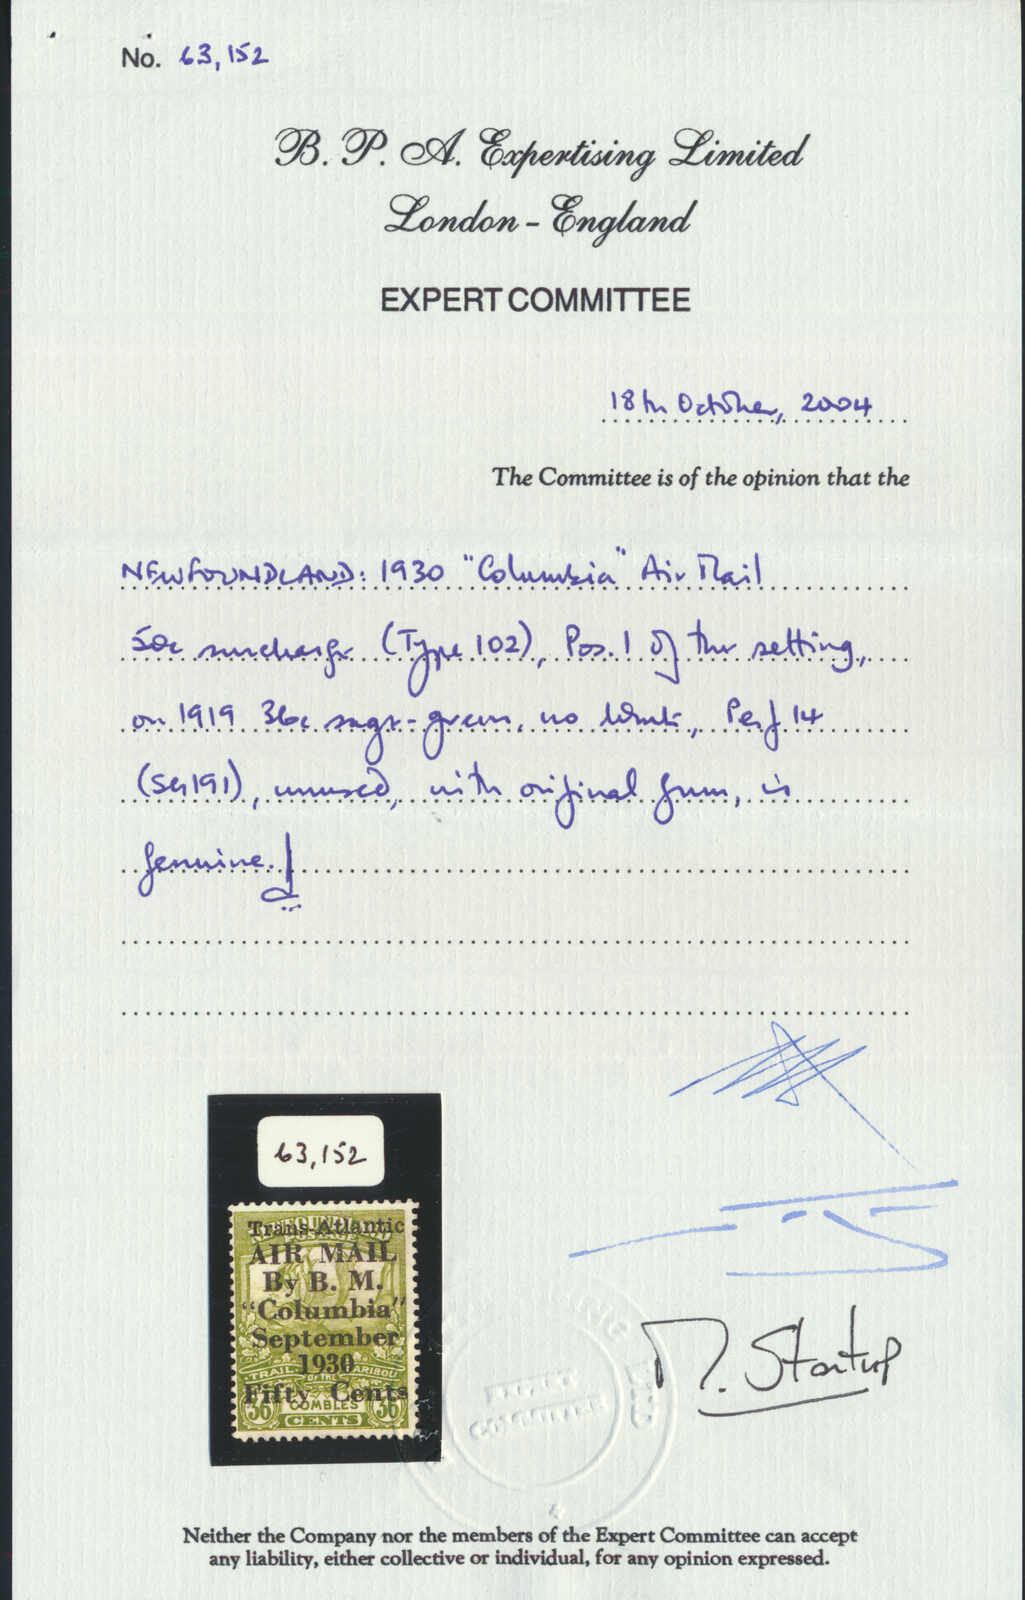 No. 63,152
B. P. A. Expertising Limited
London - England
EXPERT COMMITTEE
18th October, 2004
The Committee is of the opinion that the
NEWFOUNDLAND: 1930 "Columbia" Air Mail
50c surcharge (Type 102), Pos. 1 of the setting,
on 1919 36c sage-green, no wmk, Perf 14
(SG191), unused, with original gum, is
genuine.
63,152
Trans-Atlantic
AIR MAIL
By B. M.
"Columbia"
September
1930
TRAIL OF THE CARIBOU
Fifty Cents
36 COMBLES 36
CENTS
EXPERT
COMMITTEE
Startup
Neither the Company nor the members of the Expert Committee can accept
any liability, either collective or individual, for any opinion expressed.